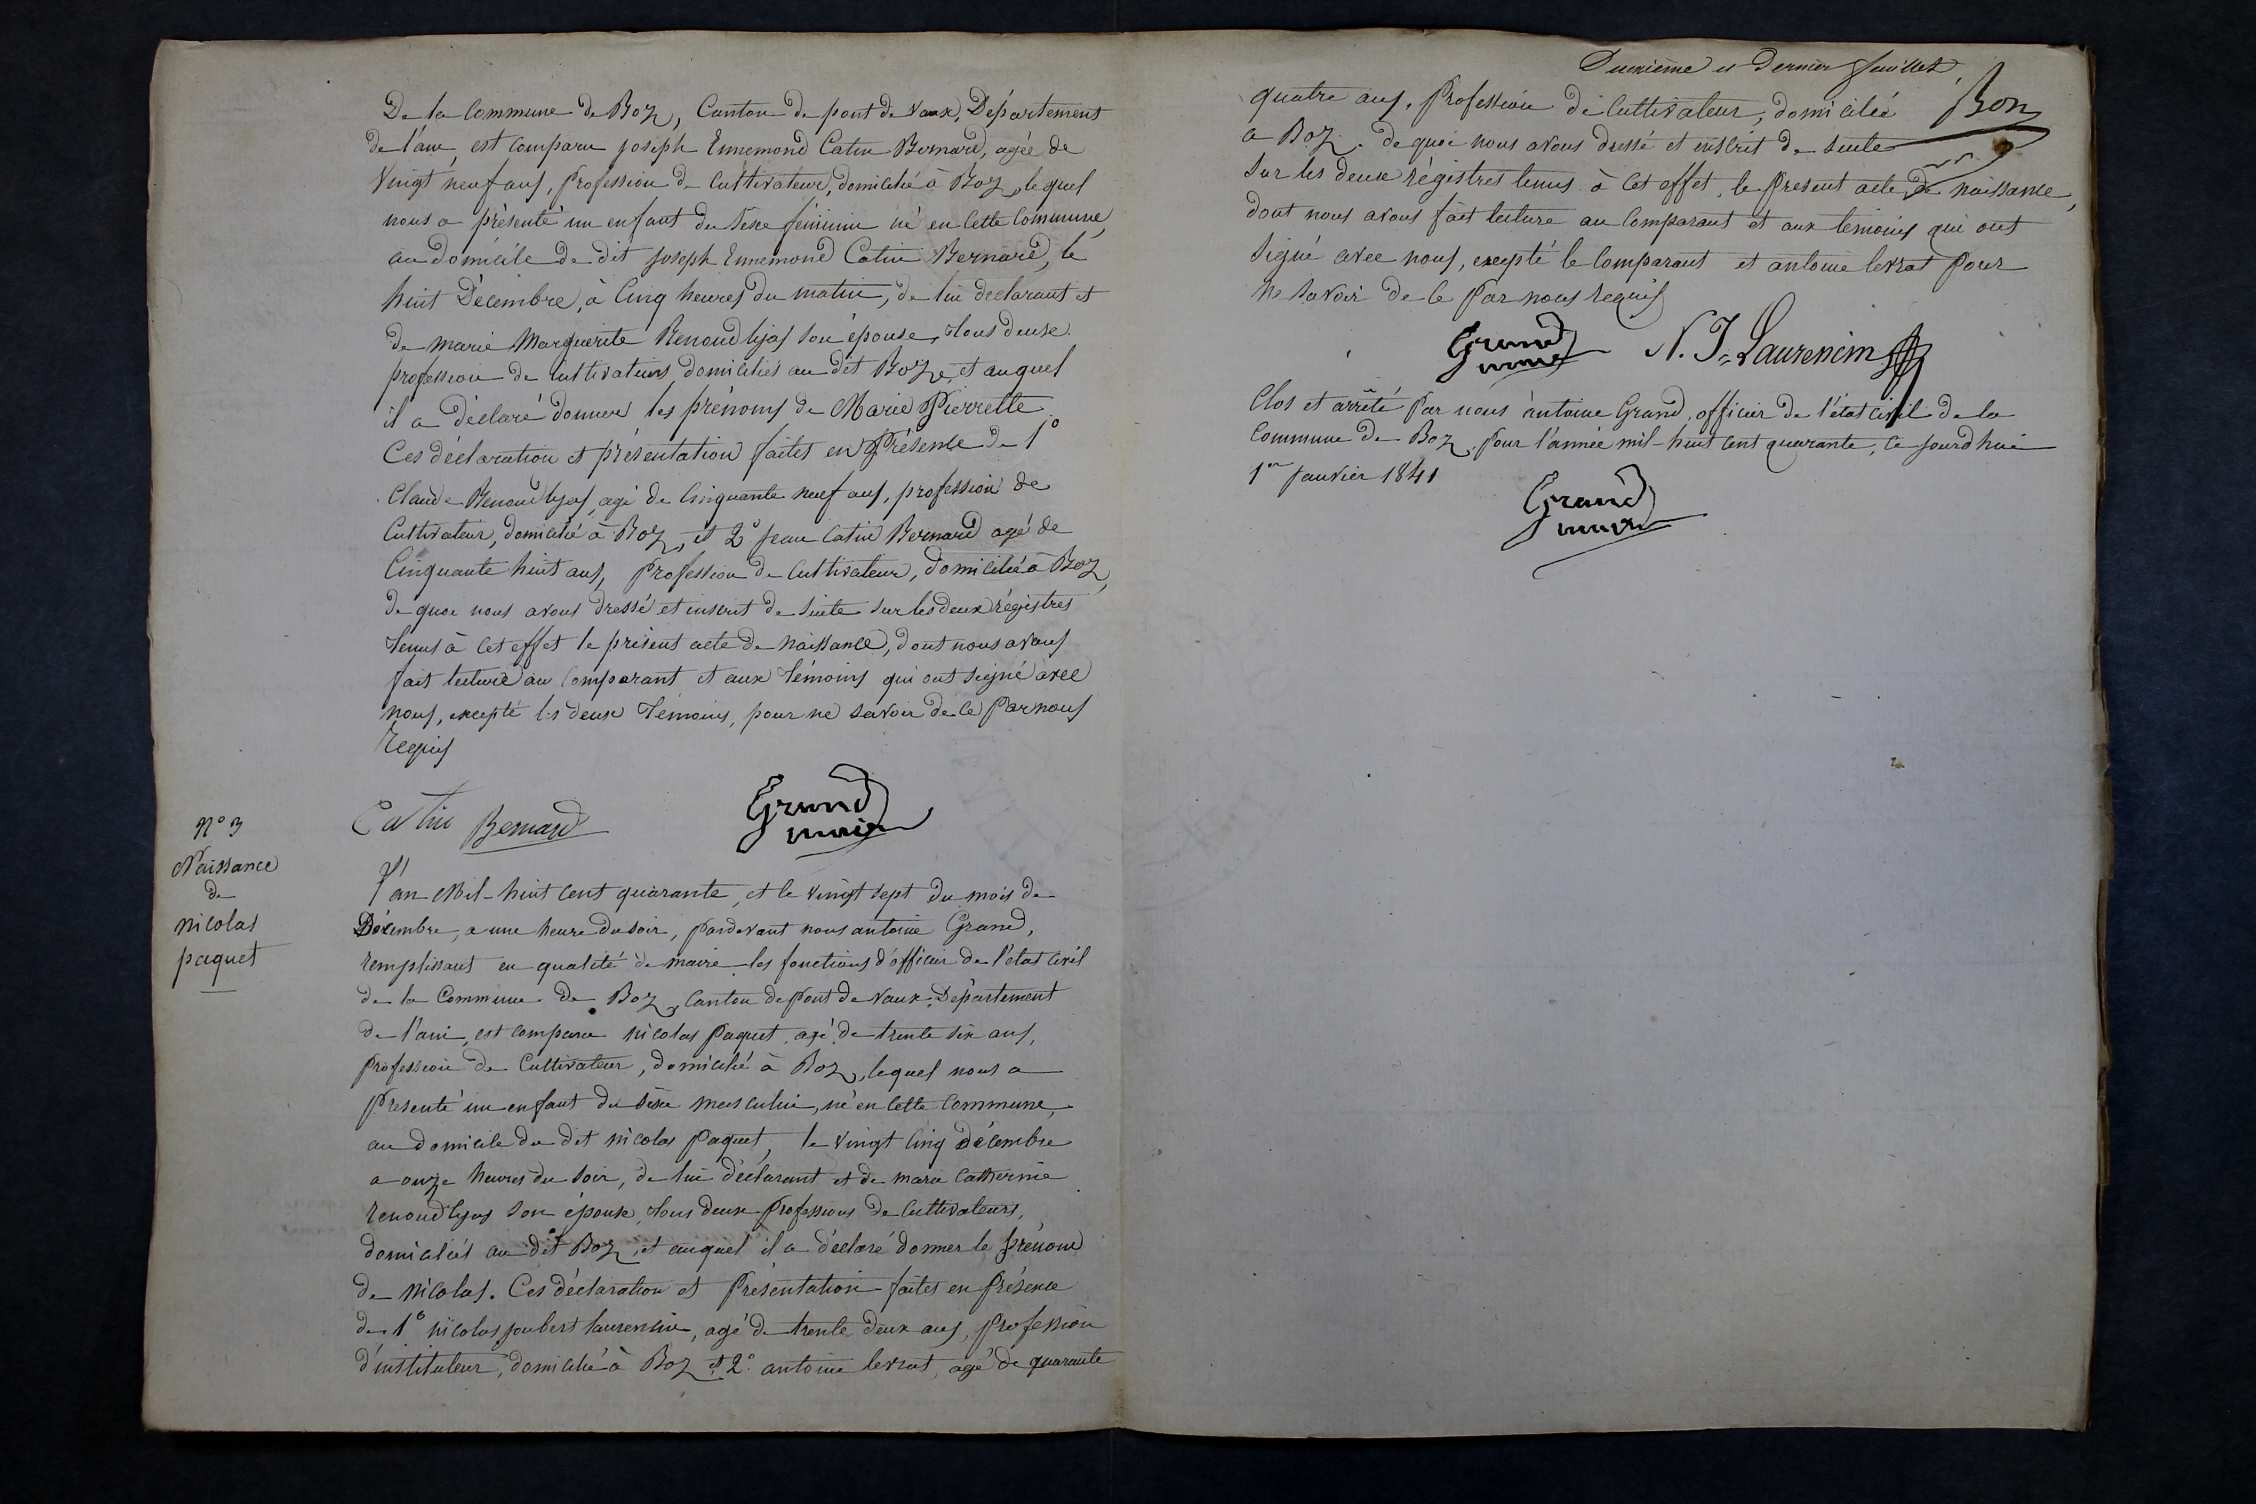 De la Commune de Boz, Canton de pont de vaux, Département
de l'ain, est comparu joseph Ennemond Catin Bernard, agée de
Vingt neuf ans, profession de Cultivateur, domicilié à Boz, lequel
nous a présenté un enfant du sexe féminin né en cette Commune,
au domicile de dit joseph Ennemond Catin Bernard, le
huit Décembre, à Cinq heures du matin, de lui declarant et
de marie Marguerite Renoud lyas son épouse, tous deux
profession de Cultivateurs domiciliés au dit Boz, et auquel
il a déclaré donner les prénoms de Marie Pierrette
Ces déclaration et présentation faites en Présence de 1°
Claude Renoud lyas, agé de Cinquante neuf ans, profession de
Cultivateur, domicilié à Boz, et 2° jean Catin Bernard agé de
Cinquante huit ans, Profession de Cultivateur, domicilié à Boz,
de quoi nous avons dressé et inscrit de suite sur les deux régistres
tenus à cet effet le présent acte de naissance, dont nous avons
fait lecture au Comparant et aux témoins qui ont signé avec
nous, excepté les deux témoins, pour ne savoir de ce Par nous
requis
Catin Bernard
Grand
maire
N° 3
Naissance
de
nicolas
paquet
L'an Mil-huit cent quarante, et le vingt sept du mois de
Décembre, a une heure du soir, pardevant nous antoine Grand,
remplissant en qualité de maire les fonctions d'officier de l'état civil
de la Commune de Boz, Canton de Pont de vaux, Département
de l'ain, est comparu nicolas Paquet, agé de trente six ans,
profession de Cultivateur, domicilié à Boz, lequel nous a
Présenté un enfant du sexe masculin, né en cette commune,
au domicile du dit nicolas Paquet, le vingt cinq décembre
a onze heures du soir, de lui déclarant et de marie Catherine
renoud lyas son épouse, tous deux Professions de Cultivateurs,
domiciliés au dit Boz, et auquel il a déclaré donner le prénom
de nicolas. Ces déclaration et Présentation faites en Présence
de 1° nicolas joubert laurencin, agé de trente deux ans, Profession
d'instituteur, domicilié à Boz et 2° antoine levrat, agé de quarante
Deuxième et dernier feuillet
Bon
quatre ans, Profession de Cultivateur, domicilié
a Boz. de quoi nous avons dressé et inscrit de suite
sur les deux régistres tenus à cet effet, le Present acte de naissance,
dont nous avons fait lecture au Comparant et aux témoins qui ont
signé avec nous, excepté le Comparant et antoine levrat Pour
ne savoir de ce Par nous requis
Grand
maire
N. J. Laurencin
Clos et arrêté Par nous antoine Grand, officier de l'état Civil de la
Commune de Boz, Pour l'année mil-huit cent quarante, ce jourd'hui
1er janvier 1841
Grand
maire